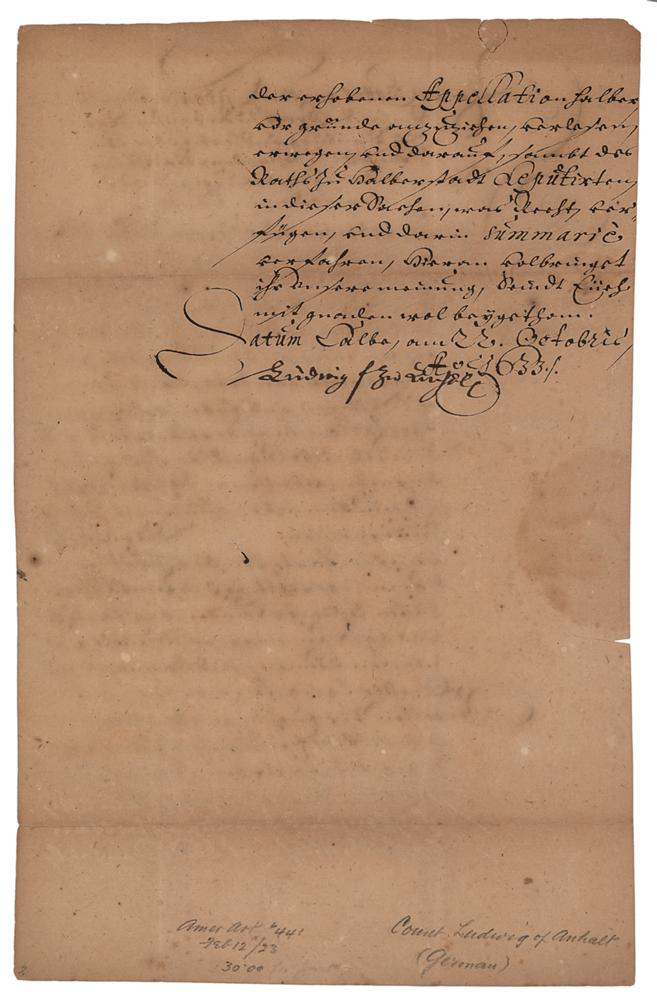 der erhobenen Appellation halber
vor gründe anzuziehen, verlesen,
erwegen, vnd darauf, sambt des
Raths zu Halberstadt Deputirten,
in dieser Sachen, was Recht, ver-
fügen, vnd darin summariè
verfahren, Hieran volbringet
ihr vnsere meinung, Seindt Euch
mit gnaden wol beygethan.
Datum Calbe, am 22. Octobris,
Aº 1633.
Ludwig f zu Anhalt
Amer Art #441
Feb 12/23
30.00
Count Ludwig of Anhalt
(German)